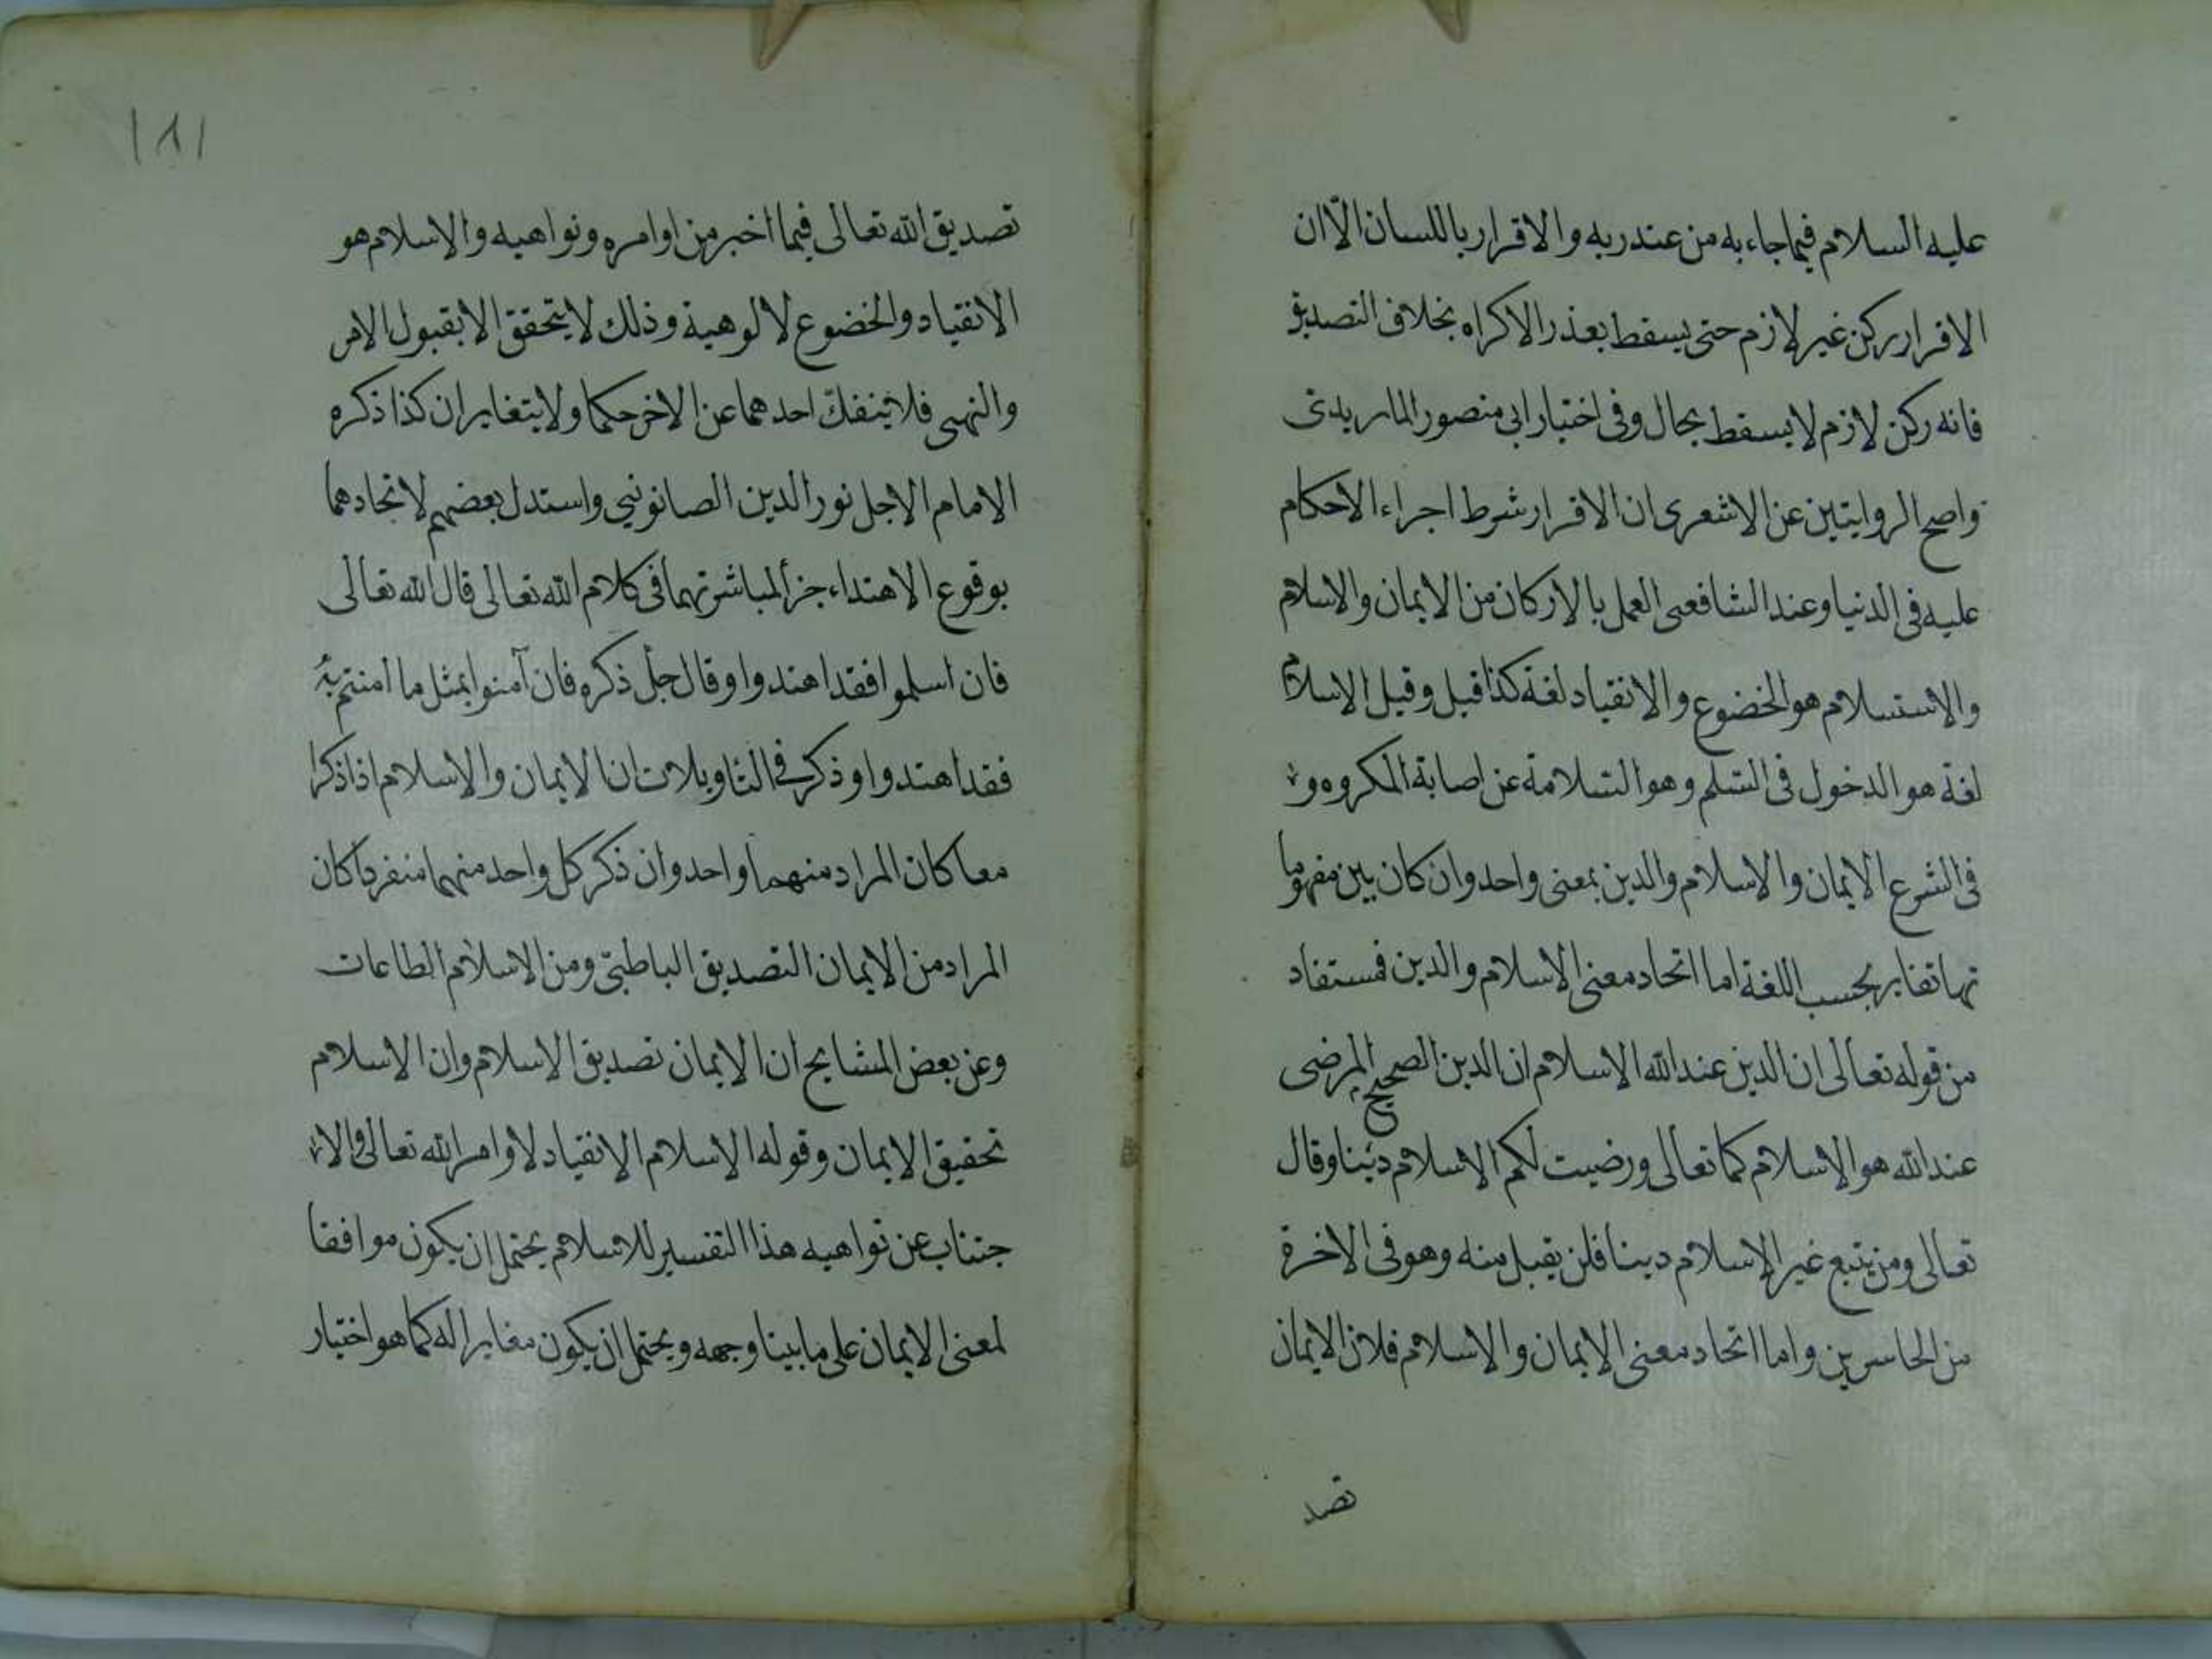 عليه السلام فيما جاء به من عند ربه والاقرار باللسان الّا ان
الاقرار ركن غير لازم حتى يسقط بعذر الاكراه بخلاف التصديق
فانه ركن لازم لا يسقط بحال وفى اختيار ابى منصور الماريدى
واصح الروايتين عن الاشعرى ان الاقرار شرط اجراء الاحكام
عليه فى الدنيا وعند الشافعى العمل بالاركان من الايمان والاسلام
والاستسلام هو الخضوع والانقياد لغة كذا قيل وقيل الاسلام
لغة هو الدخول فى السلم وهو السلامة عن اصابة المكروه و
فى الشرع الايمان والاسلام والدين بمعنى واحد وان كان بين مفهوما
تها تغاير بحسب اللغة اما اتحاد معنى الاسلام والدين فمستفاد
من قوله تعالى ان الدين عند الله الاسلام ان الدين الصحيح المرضى
عند الله هو الاسلام كما تعالى ورضيت لكم الاسلام دينا وقال
تعالى ومن يتبع غير الاسلام دينا فلن يقبل منه وهو فى الاخرة
من الخاسرين واما اتحاد معنى الايمان والاسلام فلان الايمان
تصد
١٨١
تصديق الله تعالى فيما اخبر من اوامره ونواهيه والاسلام هو
الانقياد والخضوع لالوهية وذلك لا يتحقق الا بقبول الامر
والنهى فلا ينفك احدهما عن الاخر حكما ولا يتغايران كذا ذكره
الامام الاجل نور الدين الصابونى واستدل بعضهم لاتحادهما
بوقوع الاهتداء جزأ لمباشرتهما فى كلام الله تعالى قال الله تعالى
فان اسلموا فقد اهتدوا وقال جل ذكره فان آمنوا بمثل ما امنتم به
فقد اهتدوا وذكر فى التاويلات ان الايمان والاسلام اذا ذكرا
معا كان المراد منهما واحد وان ذكر كل واحد منهما منفردا كان
المراد من الايمان التصديق الباطنى ومن الاسلام الطاعات
وعن بعض المشايخ ان الايمان تصديق الاسلام وان الاسلام
تحقيق الايمان وقوله الاسلام الانقياد لاوامر الله تعالى والا
جتناب عن نواهيه هذا التفسير للاسلام يحتمل ان يكون موافقا
لمعنى الايمان على ما بينا وجهه ويحتمل ان يكون مغايرا له كما هو اختيار